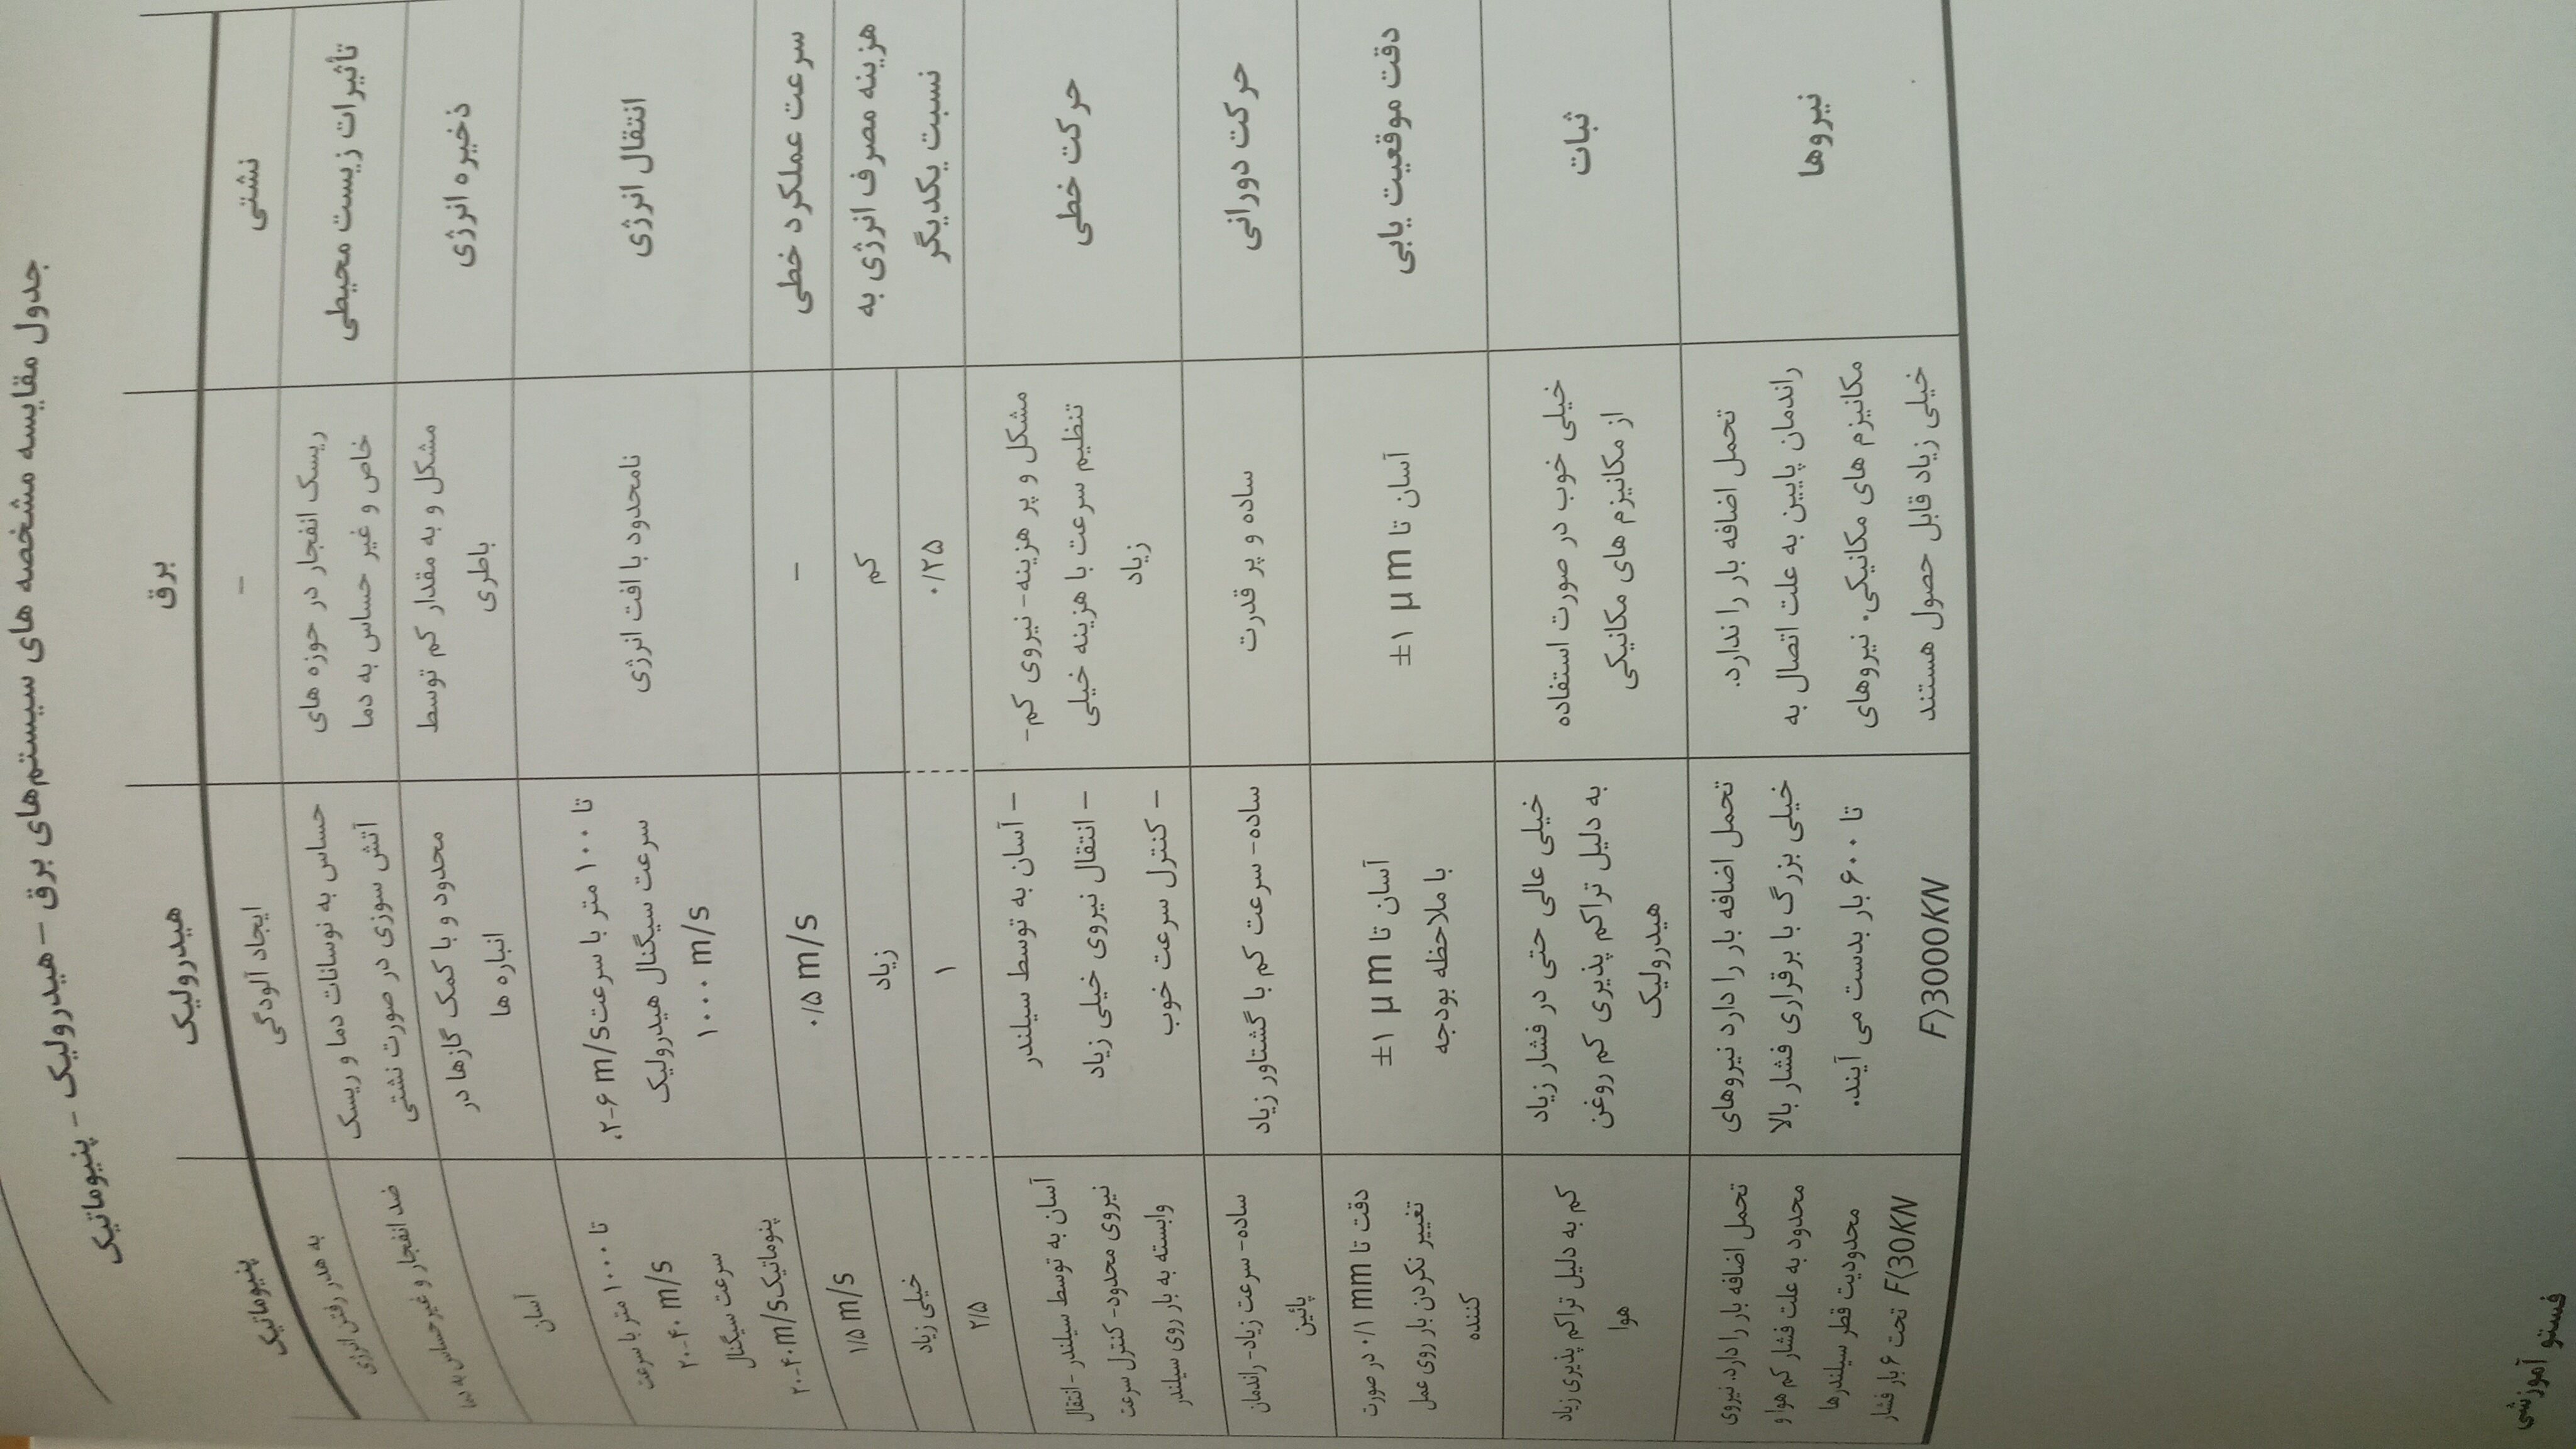 جدول مقایسه مشخصه های سیستم‌های برق – هیدرولیک – پنیوماتیک
برق
هیدرولیک
پنیوماتیک
نشتی
–
ایجاد آلودگی
به هدر رفتن انرژی
تأثیرات زیست محیطی
ریسک انفجار در حوزه های
خاص و غیر حساس به دما
حساس به نوسانات دما و ریسک
آتش سوزی در صورت نشتی
ضد انفجار و غیر حساس به دما
ذخیره انرژی
مشکل و به مقدار کم توسط
باطری
محدود و با کمک گازها در
انباره ها
آسان
انتقال انرژی
نامحدود با افت انرژی
تا ۱۰۰ متر با سرعت ۲-۶ m/s،
سرعت سیگنال هیدرولیک
۱۰۰۰ m/s
تا ۱۰۰۰ متر با سرعت
۲۰-۴۰ m/s
سرعت سیگنال
پنوماتیک ۲۰-۴۰ m/s
سرعت عملکرد خطی
–
۰/۵ m/s
۱/۵ m/s
هزینه مصرف انرژی به
نسبت یکدیگر
کم
زیاد
خیلی زیاد
۰/۲۵
۱
۲/۵
حرکت خطی
مشکل و پر هزینه- نیروی کم-
تنظیم سرعت با هزینه خیلی
زیاد
– آسان به توسط سیلندر
– انتقال نیروی خیلی زیاد
– کنترل سرعت خوب
آسان به توسط سیلندر - انتقال
نیروی محدود- کنترل سرعت
وابسته به بار روی سیلندر
حرکت دورانی
ساده و پر قدرت
ساده- سرعت کم با گشتاور زیاد
ساده- سرعت زیاد- راندمان
پائین
دقت موقعیت یابی
آسان تا ±۱ μm
آسان تا ±۱ μm
با ملاحظه بودجه
دقت تا ۰/۱ mm در صورت
تغییر نکردن بار روی عمل
کننده
ثبات
خیلی خوب در صورت استفاده
از مکانیزم های مکانیکی
خیلی عالی حتی در فشار زیاد
به دلیل تراکم پذیری کم روغن
هیدرولیک
کم به دلیل تراکم پذیری زیاد
هوا
نیروها
تحمل اضافه بار را ندارد.
راندمان پایین به علت اتصال به
مکانیزم های مکانیکی. نیروهای
خیلی زیاد قابل حصول هستند
تحمل اضافه بار را دارد نیروهای
خیلی بزرگ با برقراری فشار بالا
تا ۶۰۰ بار بدست می آیند.
F⟩3000KN
تحمل اضافه بار را دارد. نیروی
محدود به علت فشار کم هوا و
محدودیت قطر سیلندرها
F⟨30KN تحت ۶ بار فشار
فستو آموزشی